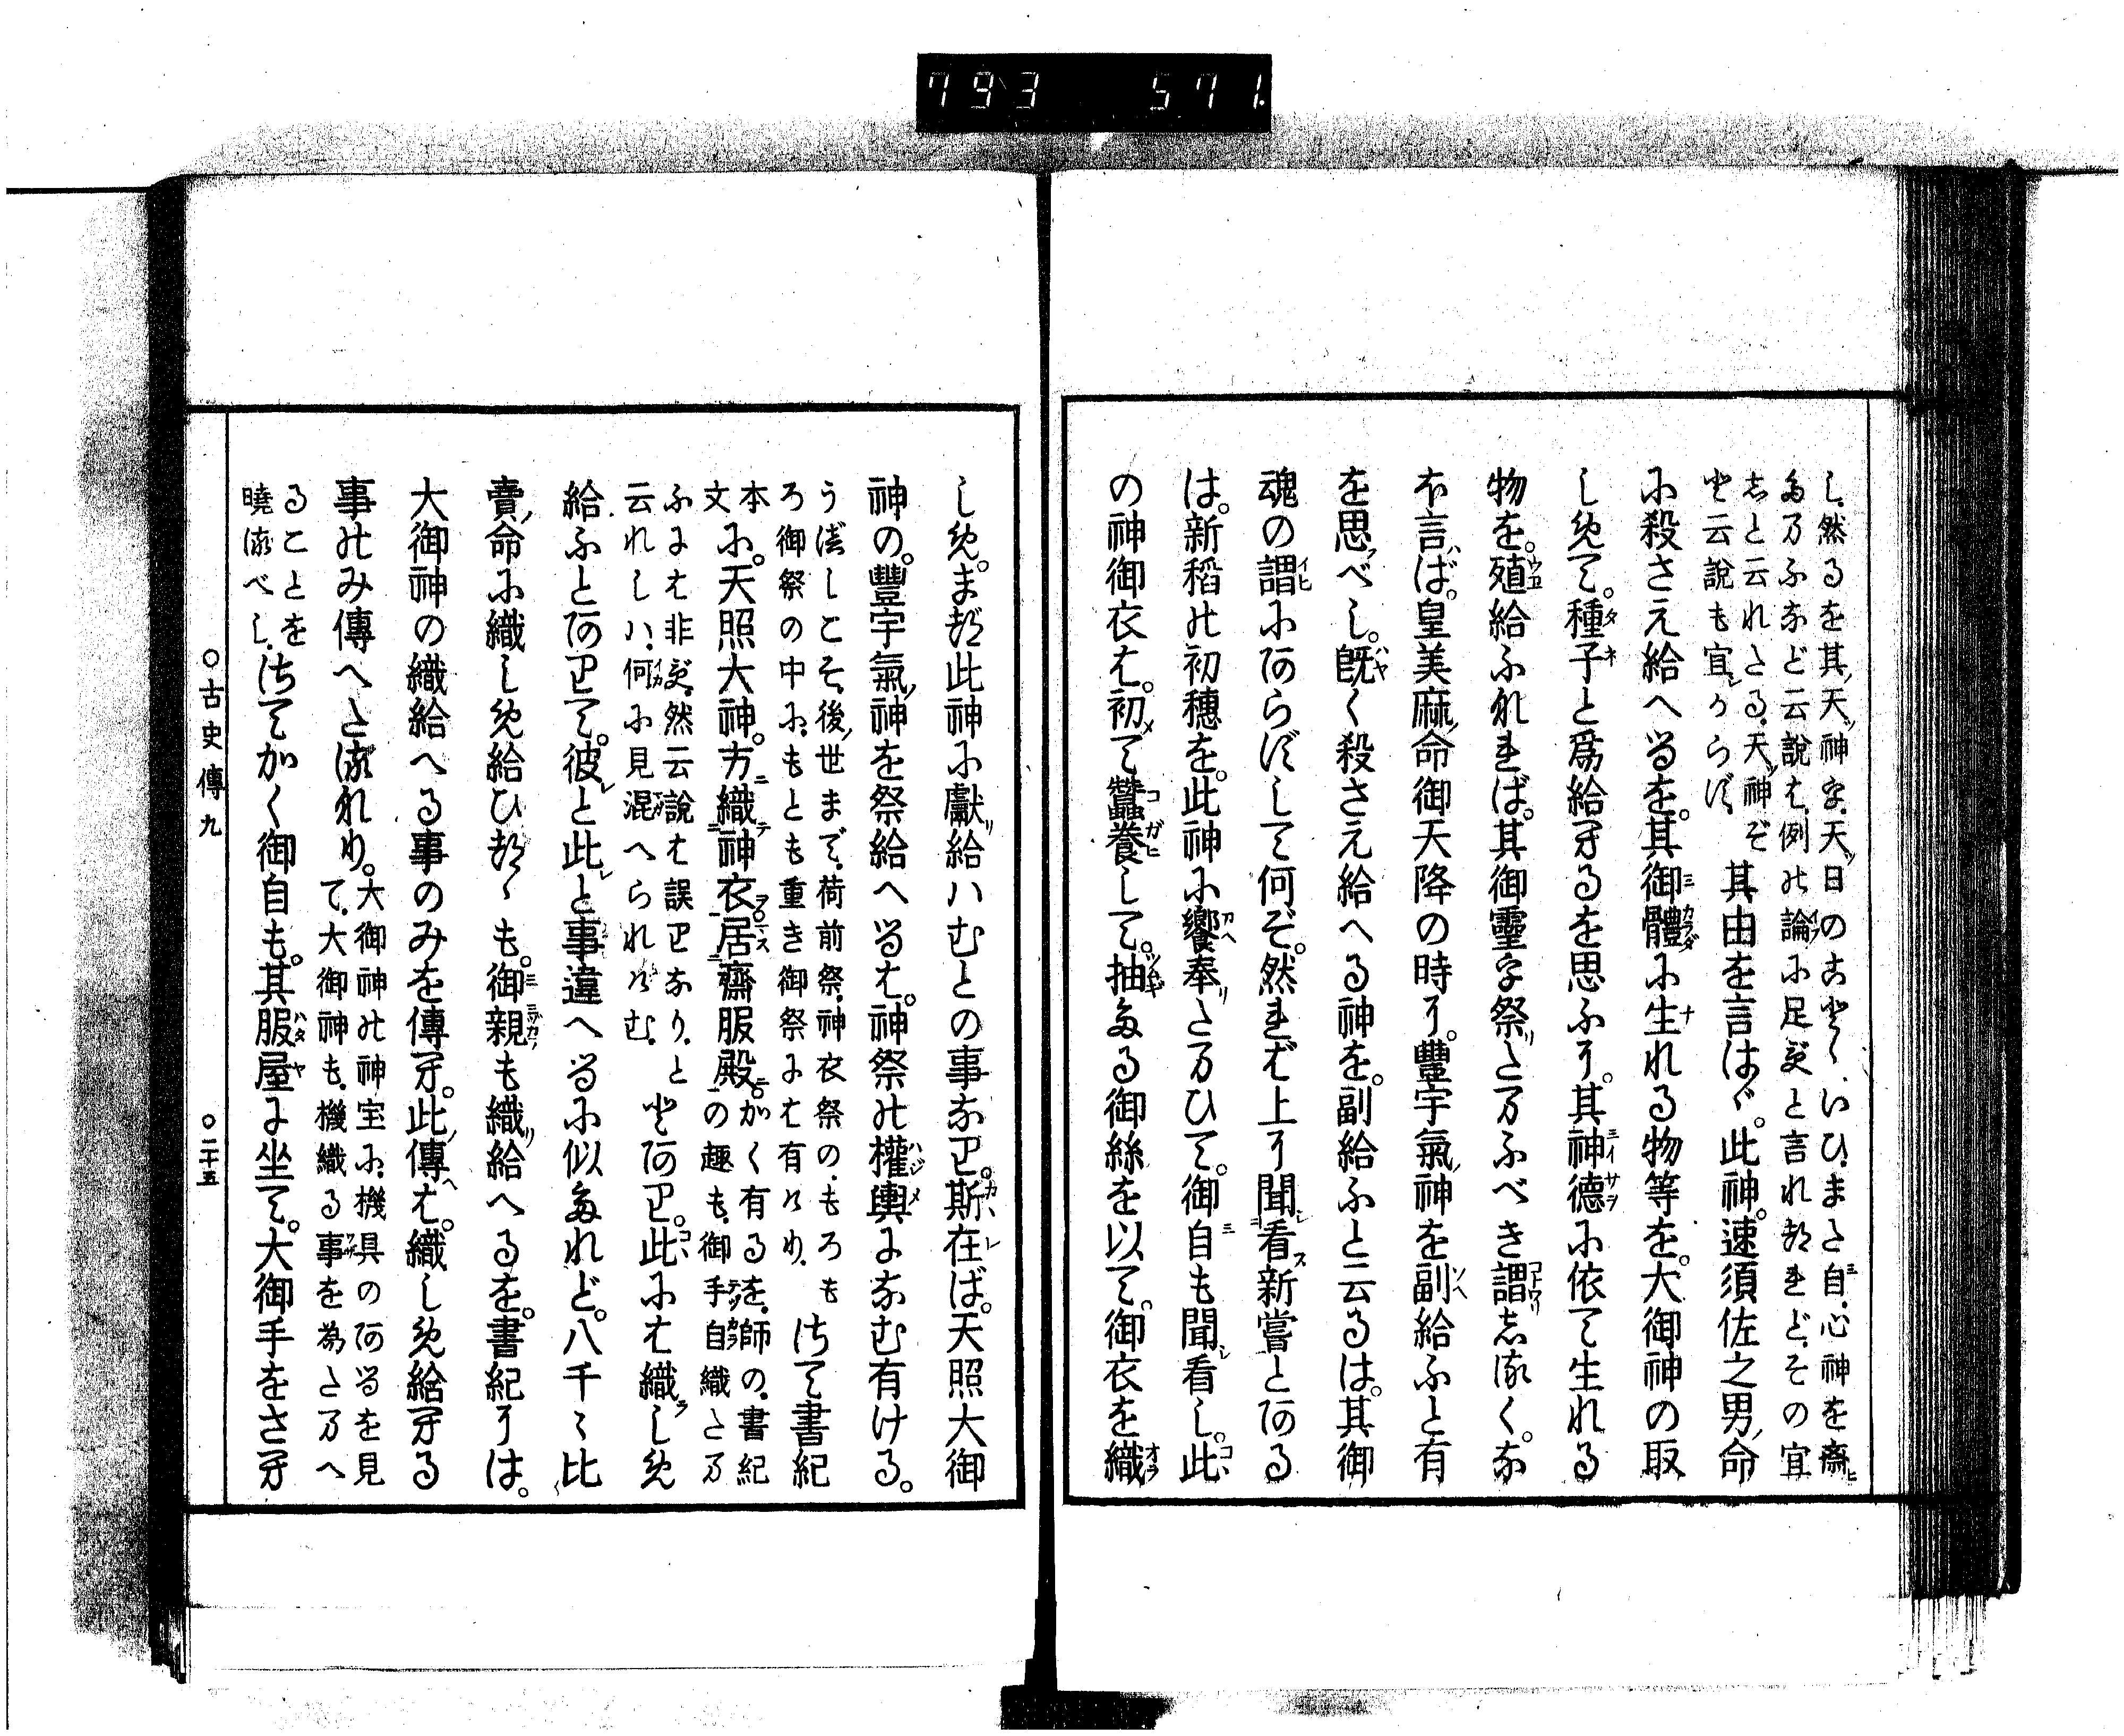 793 571.
し、然るを其天ツ神を、天ツ日のことゝいひ、また自心神を齋
たまふなど云說は、例の論ふに足ズと言れつれど、その宜
しと云れたる、天ツ神ぞ
と云說も宜からず、其由を言はゞ。此神。速須佐之男命
に殺さえ給へるを。其御體に生れる物等を。大御神の取
しめて。種子と爲給へるを思ふに。其神德に依て生れる
物を。殖給ふなれば。其御靈を祭たまふべき謂しるく。な
ほ言ば。皇美麻命御天降の時に。豐宇氣神を副給ふと有
を思べし。旣く殺さえ給へる神を。副給ふと云るは。其御
魂の謂にあらずして何ぞ。然れば上に聞看新嘗とある
は。新稻の初穗を。此神に饗奉たまひて。御自も聞看し。此
の神御衣は。初て蠶養して。抽たる御絲を以て。御衣を織
しめ。まづ此神に獻給ハむとの事なり。斯在ば。天照大御
神の。豐宇氣神を祭給へるは。神祭の權輿になむ有ける。
うべしこそ、後世まで、荷前祭、神衣祭の、もろも
ろ御祭の中に、もとも重き御祭には有けめ、さて書紀
本文に。天照大神。方織神衣居齋服殿。かく有るを、師の、書紀
の趣も、御手自織たま
ふには非ズ、然云說は誤りなり、と
云れしハ、何に見混へられけむ、とあり。此には織しめ
給ふとありて。彼と此と事違へるに似たれど。八千々比
賣命に織しめ給ひつゝも。御親も織給へるを。書紀には。
大御神の織給へる事のみを傳へ。此傳は。織しめ給へる
事のみ傳へたるなり。大御神の神宝に、機具のあるを見
て、大御神も、機織る事を為たまへ
ることを
曉るべし、さてかく御自も。其服屋に坐て。大御手をさへ
○古史傳九 ○二十五